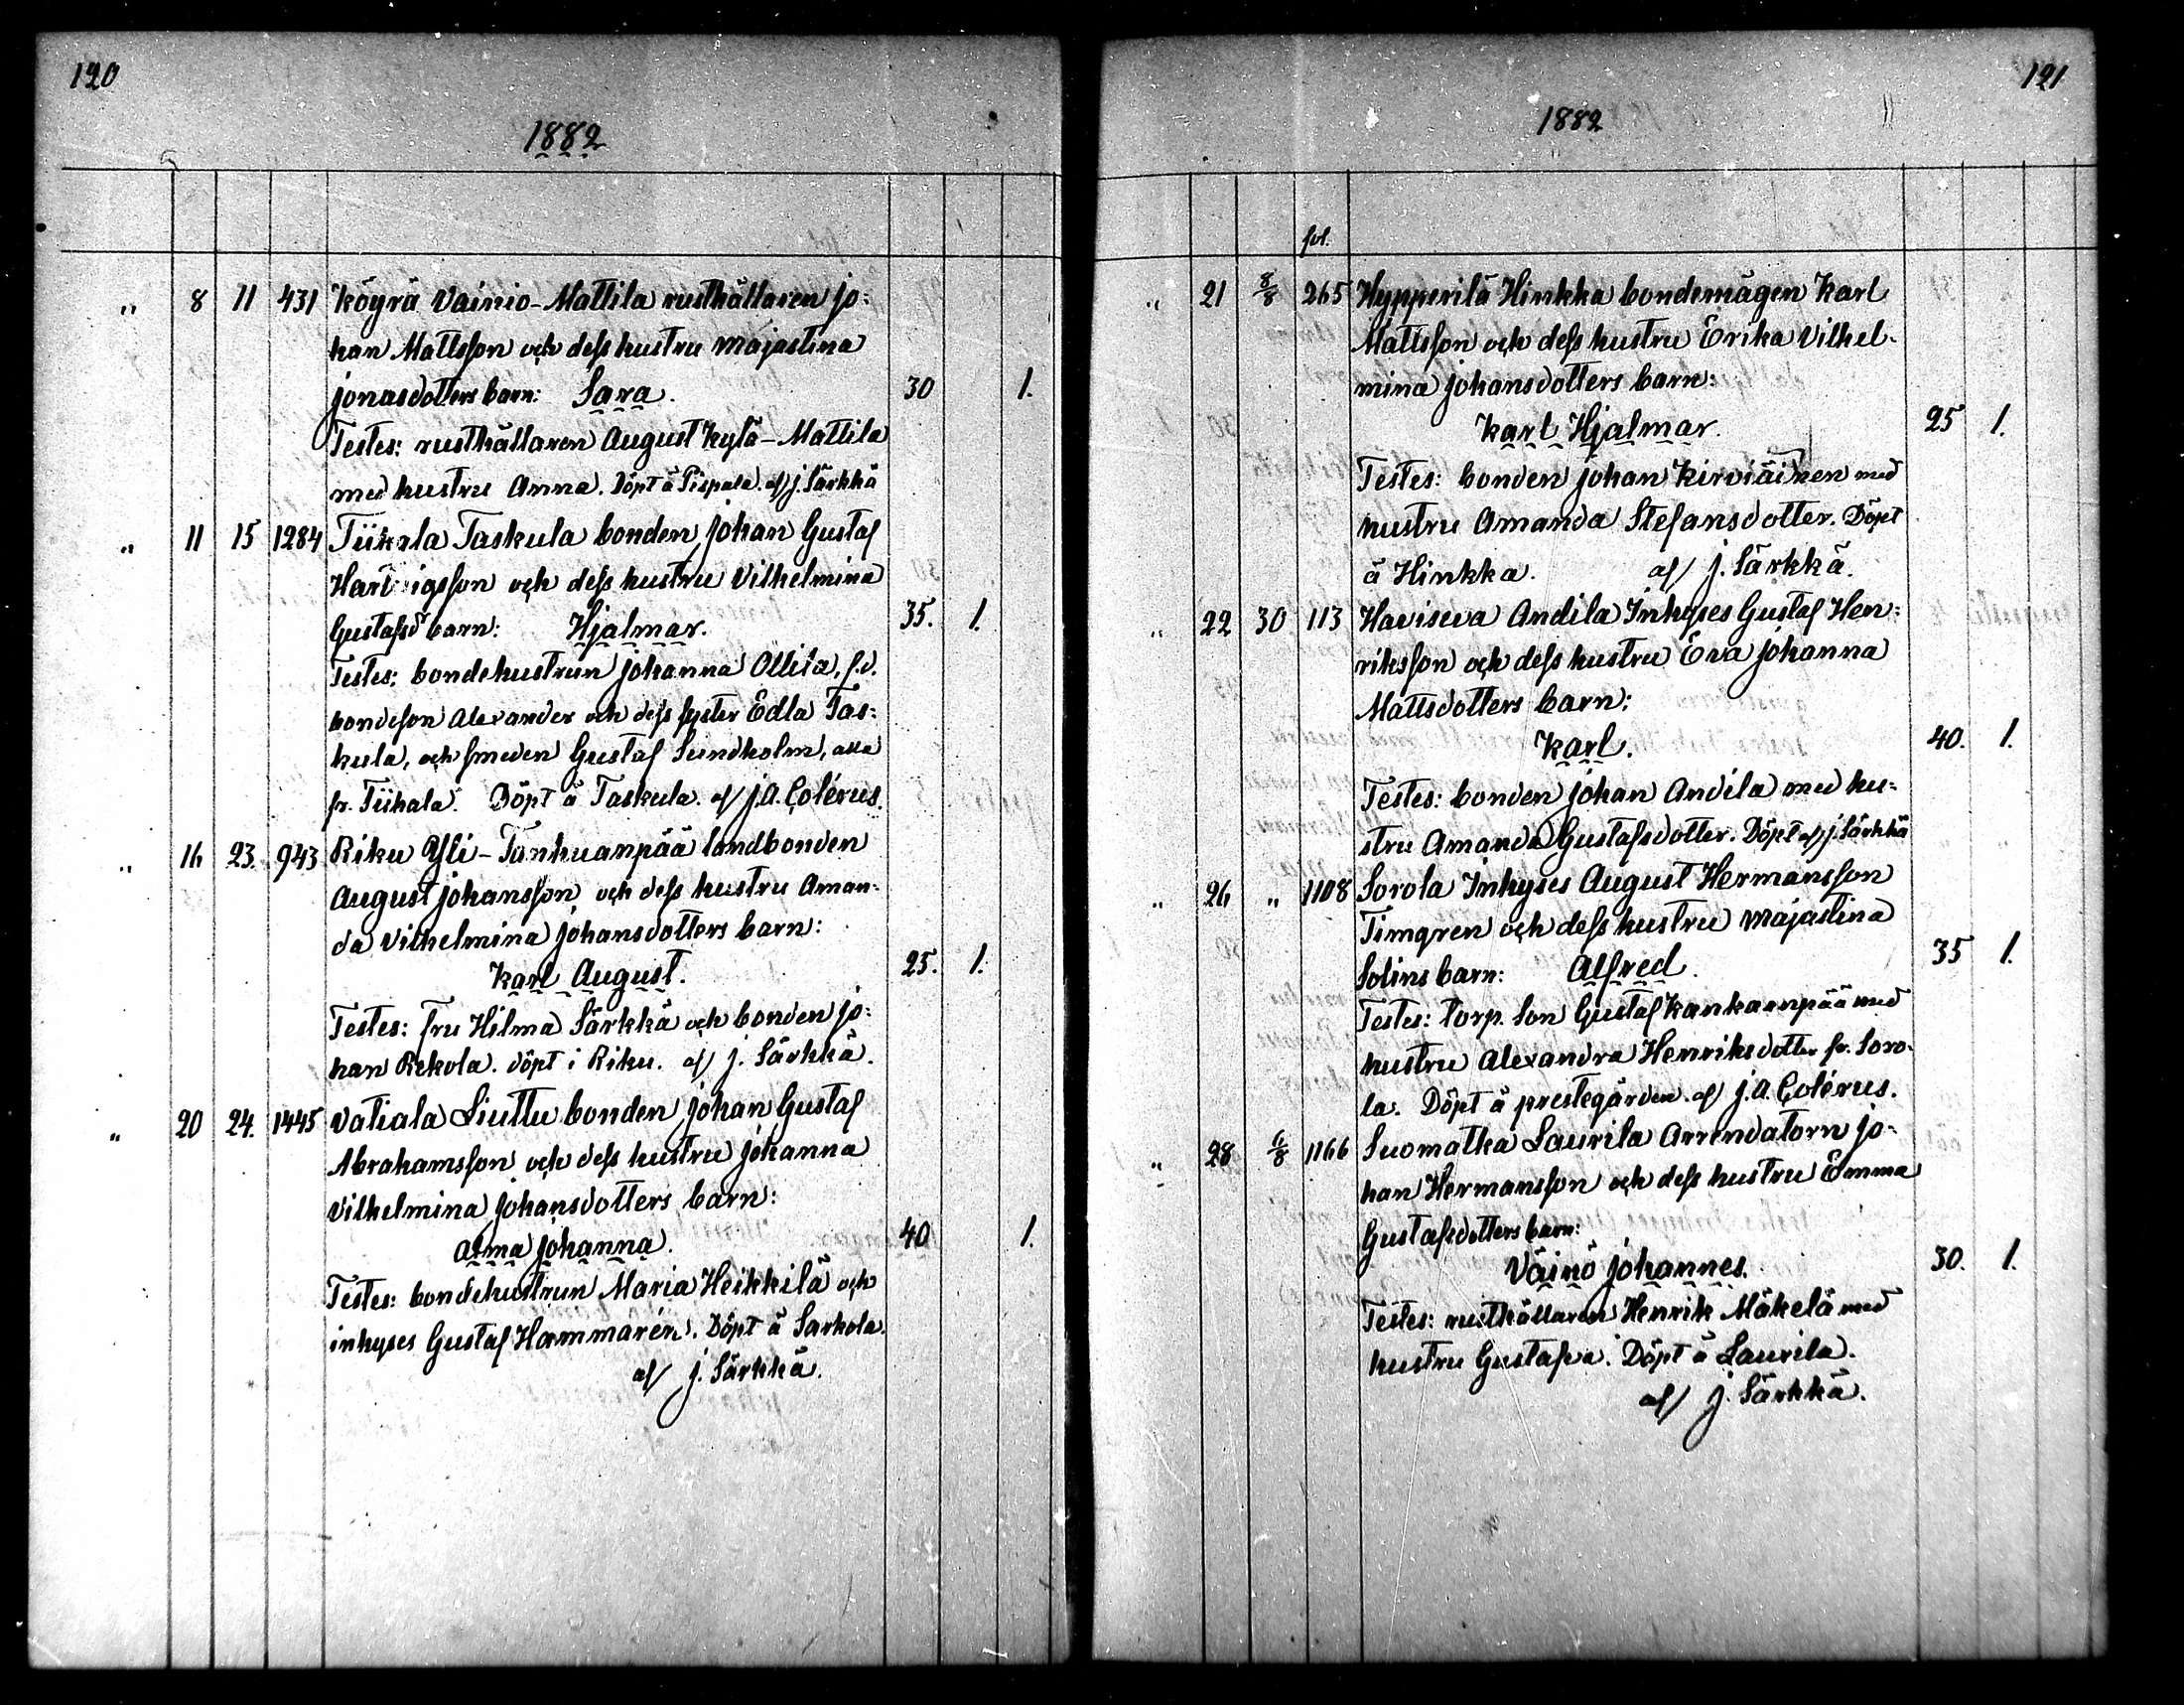 120
1882
„ 8 11 431 Köyrä Vainio-Mattila rusthållaren Jo:
han Mattsson och dess hustru Majastina
Jonasdotters barn: Sara. 30 1.
Testes: rusthållaren August Kylä-Mattila
med hustru Anna. Döpt å Pispala. af J. Särkkä
„ 11 15 1284 Tiihala Taskula bonden Johan Gustaf
Hartvigsson och dess hustru Vilhelmina
Gustafsdr barn: Hjalmar. 35. 1.
Testes: bondehustrun Johanna Ollila, f.d.
bondeson Alexander och dess syster Edla Tas:
kula, och smeden Gustaf Sundholm, alla
fr. Tiihala. Döpt å Taskula. af J.A. Colérus.
„ 16 23. 943 Riku Yli-Tanhuanpää landbonden
August Johansson och dess hustru Aman:
da Vilhelmina Johansdotters barn:
Karl August. 25. 1.
Testes: fru Hilma Särkkä och bonden Jo:
han Rekola. Döpt i Riku. af J. Särkkä.
„ 20 24. 1445 Vatiala Liuttu bonden Johan Gustaf
Abrahamsson och dess hustru Johanna
Vilhelmina Johansdotters barn:
Alma Johanna. 40 1.
Testes: bondehustrun Maria Heikkilä och
inhyses Gustaf Hammarén. Döpt å Sarkola.
af J. Särkkä.
121
1882
fol.
„ 21 8/8 265 Hypperilä Hinkka bondemågen Karl
Mattsson och dess hustru Erika Vilhel:
mina Johansdotters barn:
Karl Hjalmar. 25 1.
Testes: bonden Johan Kirviäinen med
hustru Amanda Stefansdotter. Döpt
å Hinkka. af J. Särkkä.
„ 22 30 113 Haviseva Andila Inhyses Gustaf Hen:
riksson och dess hustru Eva Johanna
Mattsdotters barn:
Karl. 40. 1.
Testes: bonden Johan Andila med hu:
stru Amanda Gustafsdotter. Döpt af J. Särkkä
„ 26 „ 1108 Sorola Inhyses August Hermansson
Timgren och dess hustru Majastina
Solins barn: Alfred. 35 1.
Testes: torp. son Gustaf Kankaanpää med
hustru Alexandra Henriksdotter fr. Soro:
la. Döpt å prestegården. af J.A. Colérus.
„ 28 6/8 1166 Suomatka Laurila Arrendatorn Jo:
han Hermansson och dess hustru Emma
Gustafsdotters barn:
Väinö Johannes. 30. 1.
Testes: rusthållaren Henrik Mäkelä med
hustru Gustafva. Döpt å Laurila.
af J. Särkkä.